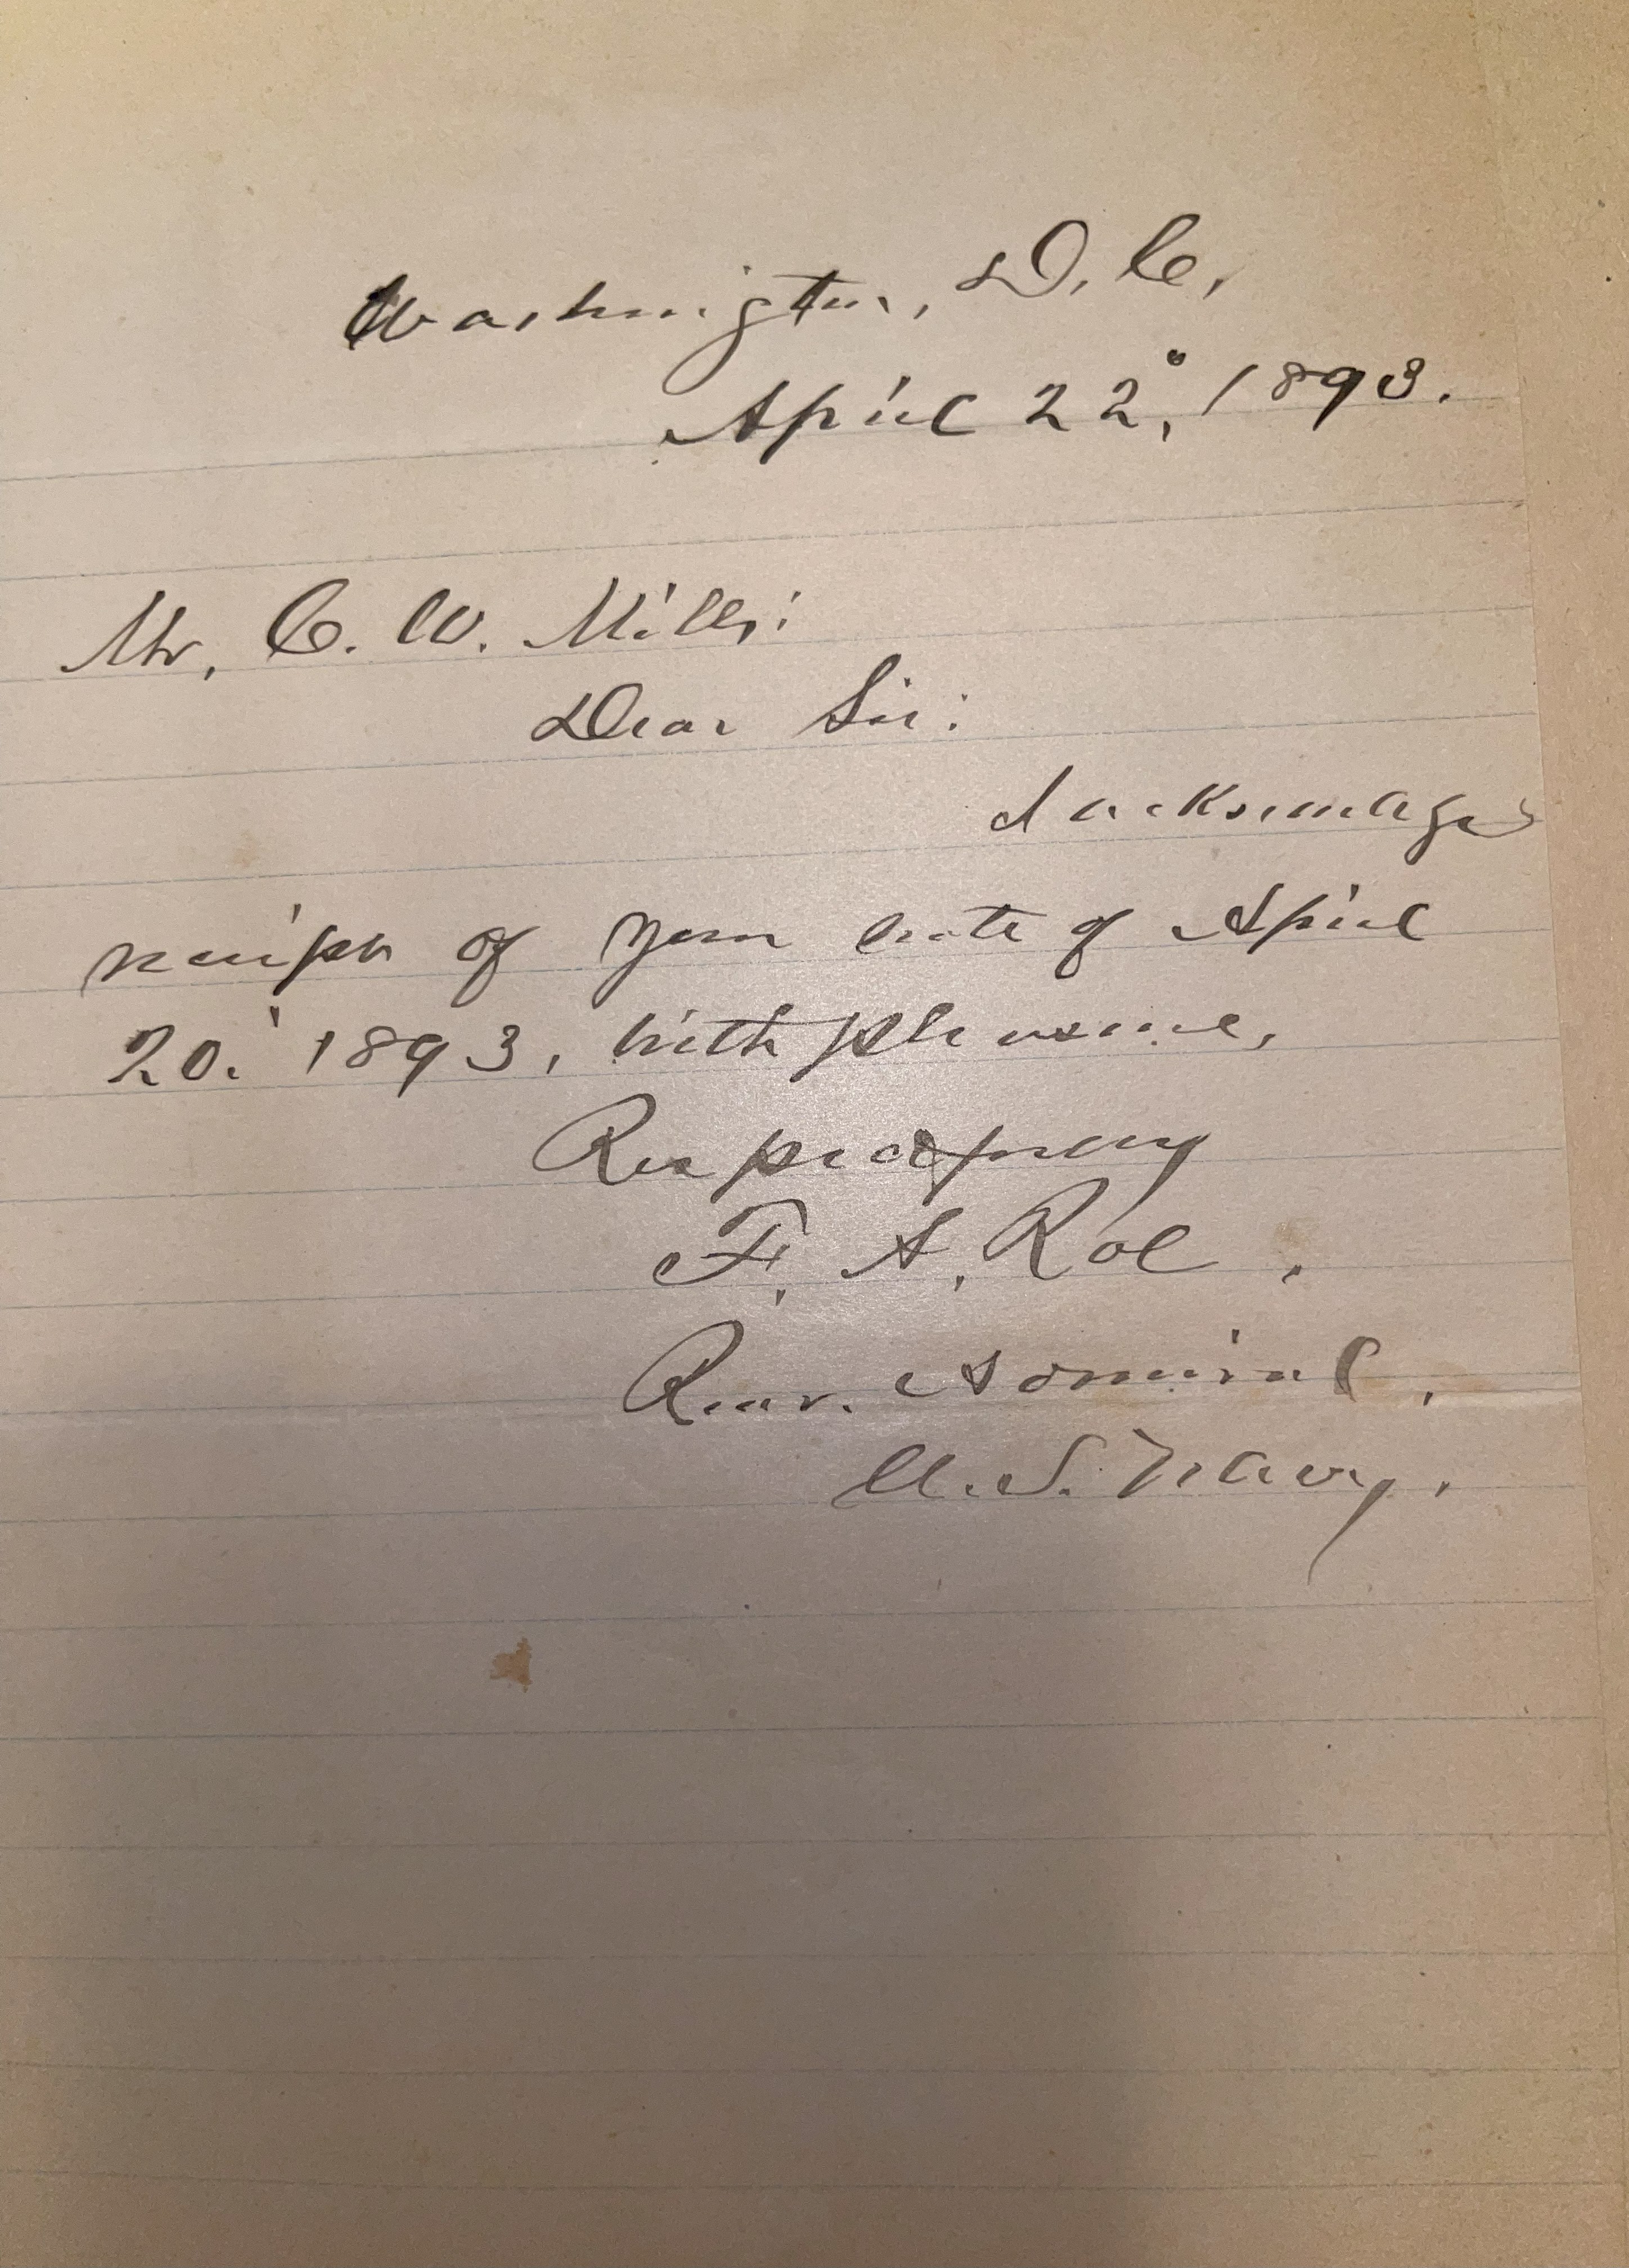 Washington, D. C.
April 22", 1893.
Mr. C. W. Mills:
Dear Sir:
I acknowledge
receipt of your note of April
20." 1893, with pleasure.
Respectfully
F. A. Roe.
Rear. Admiral.
U. S. Navy.